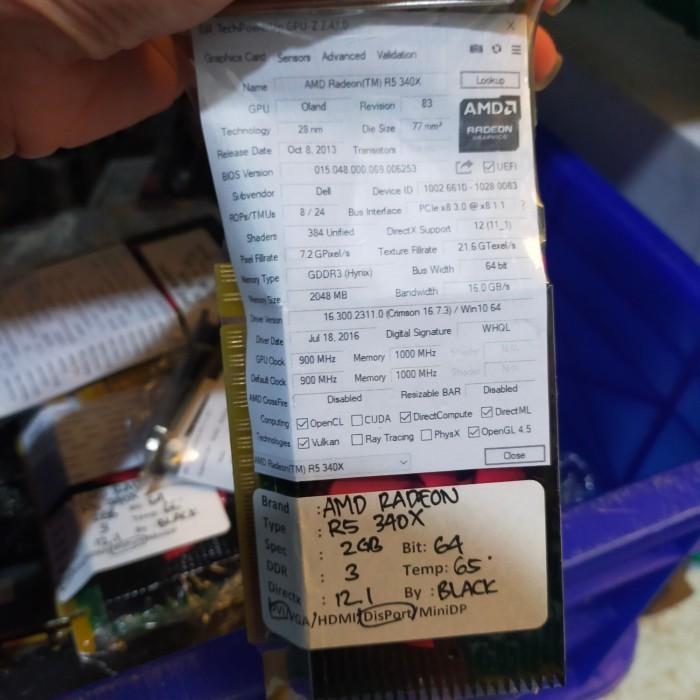 TechPowerUp GPU-Z 2.41.0
Graphics Card Sensors Advanced Validation
Name AMD Radeon(TM) R5 340X Lookup
GPU Oland Revision 83
AMD
RADEON
GRAPHICS
Technology 28 nm Die Size 77 mm²
Release Date Oct 8, 2013 Transistors
BIOS Version 015.048.000.069.006253 UEFI
Subvendor Dell Device ID 1002 6610 - 1028 0083
ROPs/TMUs 8 / 24 Bus Interface PCIe x8 3.0 @ x8 1.1 ?
Shaders 384 Unified DirectX Support 12 (11_1)
Pixel Fillrate 7.2 GPixel/s Texture Fillrate 21.6 GTexel/s
Memory Type GDDR3 (Hynix) Bus Width 64 bit
Memory Size 2048 MB Bandwidth 16.0 GB/s
Driver Version 16.300.2311.0 (Crimson 16.7.3) / Win10 64
Driver Date Jul 18, 2016 Digital Signature WHQL
GPU Clock 900 MHz Memory 1000 MHz Shader N/A
Default Clock 900 MHz Memory 1000 MHz Shader N/A
AMD CrossFire Disabled Resizable BAR Disabled
Computing OpenCL CUDA DirectCompute DirectML
Technologies Vulkan Ray Tracing PhysX OpenGL 4.5
AMD Radeon(TM) R5 340X Close
Brand : AMD RADEON
Type : R5 340X
Spec : 2GB Bit: 64
DDR : 3 Temp: 65°
Directx : 12.1 By : BLACK
DVI/VGA/HDMI/DisPort/MiniDP